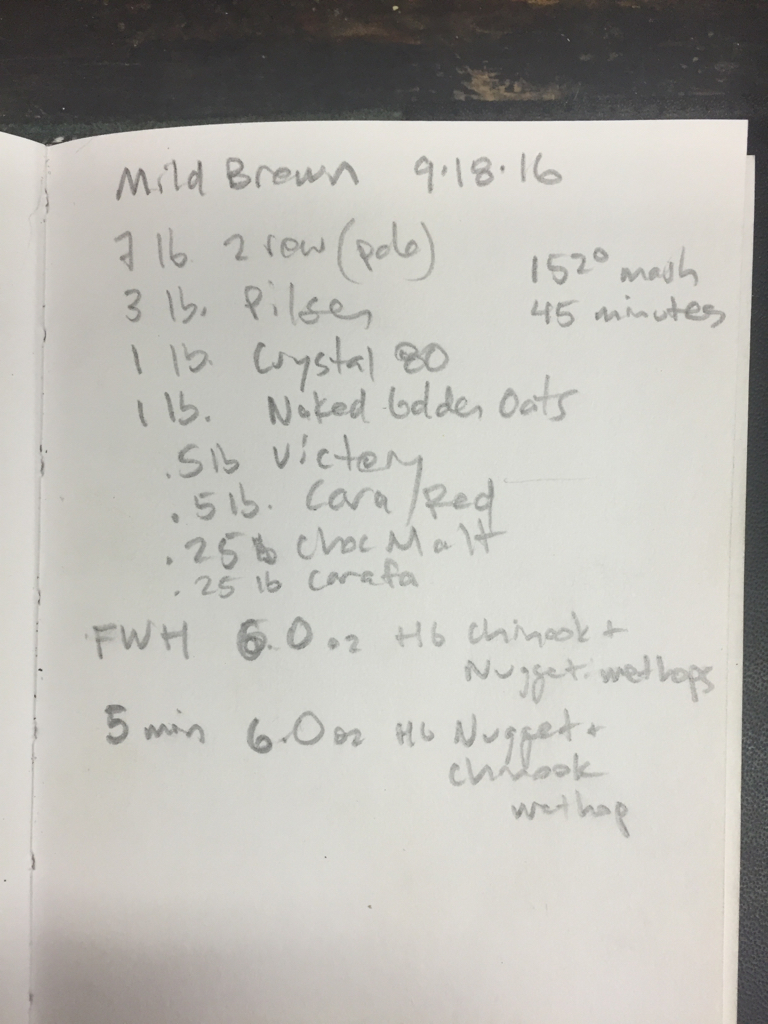 Mild Brown 9.18.16
7 lb 2 row (pale)
152° mash
3 lb. Pilsen
45 minutes
1 lb. Crystal 80
1 lb. Naked Golden Oats
.5 lb Victory
.5 lb. Cara/Red
.25 lb Choc Malt
.25 lb carafa
FWH 6.0 oz HG Chinook +
Nugget. wethops
5 min 6.0 oz HG Nugget +
chinook
wethop